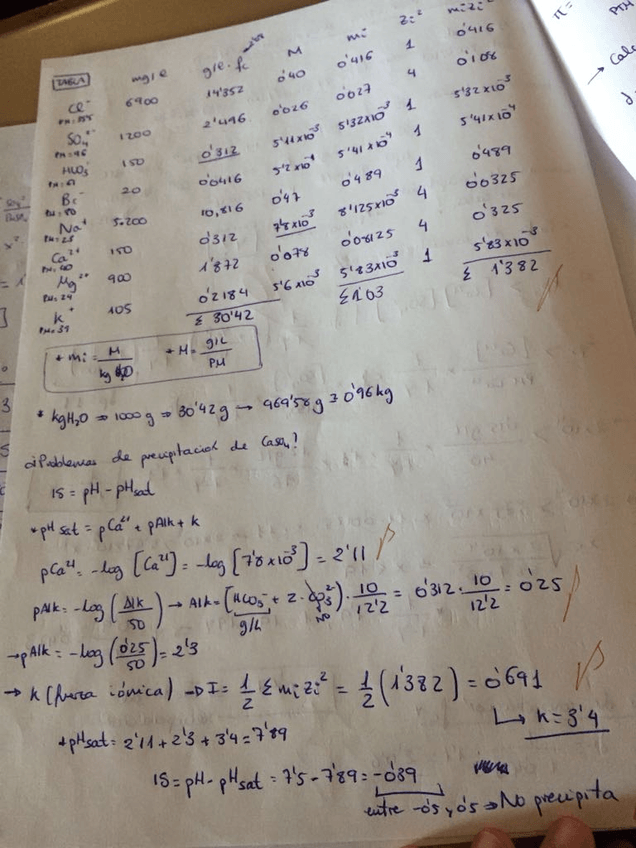 TABLA mg/l g/l·fc M mi Zi² miZi²
Cl⁻ 6900 14'352 0'40 0'416 1 0'416
SO₄²⁻ 1200 2'496 0'026 0'027 4 0'108
PM=96
HCO₃⁻ 150 0'312 5'11x10⁻³ 5'32x10⁻³ 1 5'32x10⁻³
PM=61
Br⁻ 20 0'0416 5'2x10⁻⁴ 5'41x10⁻⁴ 1 5'41x10⁻⁴
PM=80
Na⁺ 5.200 10,816 0'47 0'489 1 0'489
PM=23
Ca²⁺ 150 0'312 7'8x10⁻³ 8'125x10⁻³ 4 0'0325
PM=40
Mg²⁺ 900 1'872 0'078 0'08125 4 0'325
PM=24
K⁺ 105 0'2184 5'6x10⁻³ 5'83x10⁻³ 1 5'83x10⁻³
PM=39
Σ 30'42 Σ 1'03 Σ 1'382
* mi = M / kg H₂O * M = g/L / PM
* kgH₂O ⇒ 1000 g ⇒ 30'42 g → 969'58 g ⇒ 0'96 kg
¿Problemas de precipitación de CaSO₄?
IS = pH - pHsat
* pH sat = pCa²⁺ + pAlk + k
pCa²⁺ = -log [Ca²⁺] = -log [7'8x10⁻³] = 2'11
pAlk = -log (Alk/50) → Alk = (HCO₃⁻ + 2·CO₃²⁻)·10/12'2 = 0'312·10/12'2 = 0'25
g/L NO
→ pAlk = -log (0'25/50) = 2'3
→ k (fuerza iónica) → I = 1/2 Σ miZi² = 1/2 (1'382) = 0'691
↳ k = 3'4
* pHsat = 2'11 + 2'3 + 3'4 = 7'89
IS = pH - pHsat = 7'5 - 7'89 = -0'39
entre -0'5 y 0'5 ⇒ No precipita